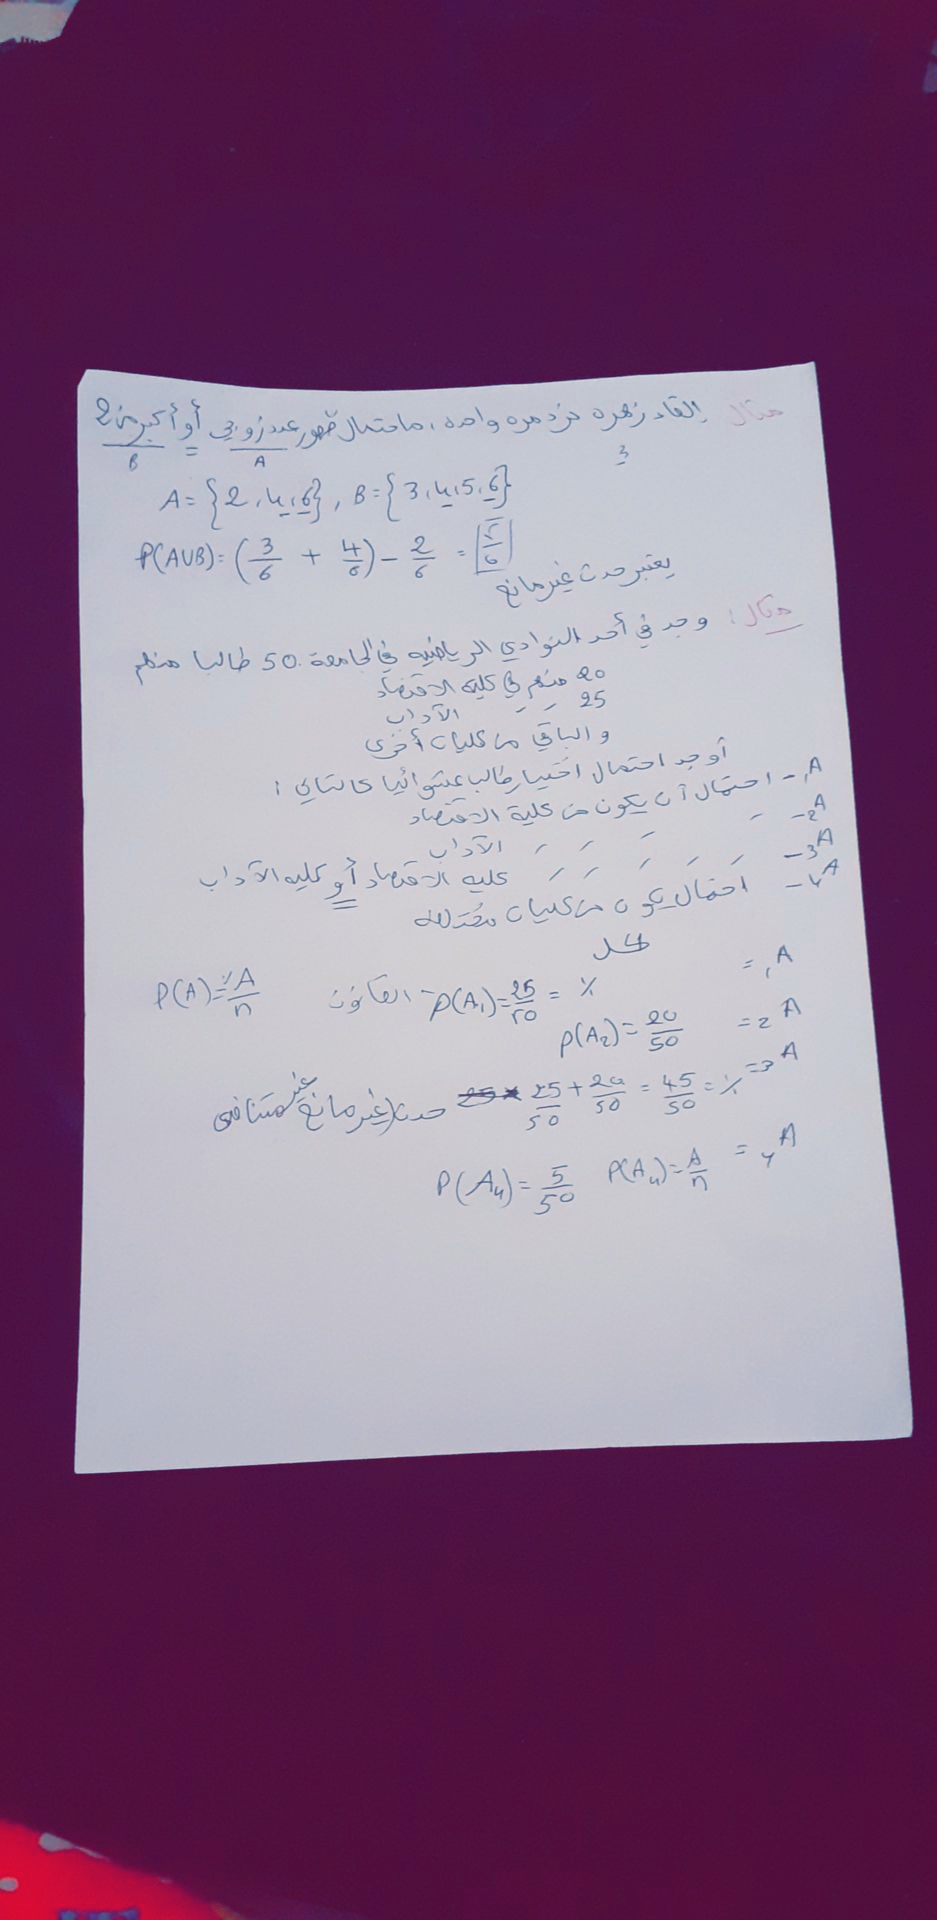 مثال إلقاء زهره نرد مره واحده، ما احتمال ظهور عدد زوجي أو أكبر من 2
B = A 3
A = {2, 4, 6}, B = {3, 4, 5, 6}
P(AUB) = (3/6 + 4/6) - 2/6 = 5/6
يعتبر حدث غير مانع
مثال: وجد في أحد النوادي الرياضيه في الجامعة 50 طالبا منهم
20 منهم في كلية الاقتصاد
25 〃 〃 الآداب
والباقي من كليات أخرى
أوجد احتمال اختيار طالب عشوائيا كالتالي:
A1- احتمال أن يكون من كلية الاقتصاد
A2- 〃 〃 〃 〃 الآداب
A3- 〃 〃 〃 〃 〃 كلية الاقتصاد أو كليه الآداب
A4- احتمال يكون من كليات مختلفه
الحل
A1 = P(A1) = 25/50 = % القانون P(A) = A/n
A2 = P(A2) = 20/50
A3 = 25/50 + 20/50 = 45/50 = % حدث (غير مانع) غير متنافي
A4 = P(A4) = A/n P(A4) = 5/50